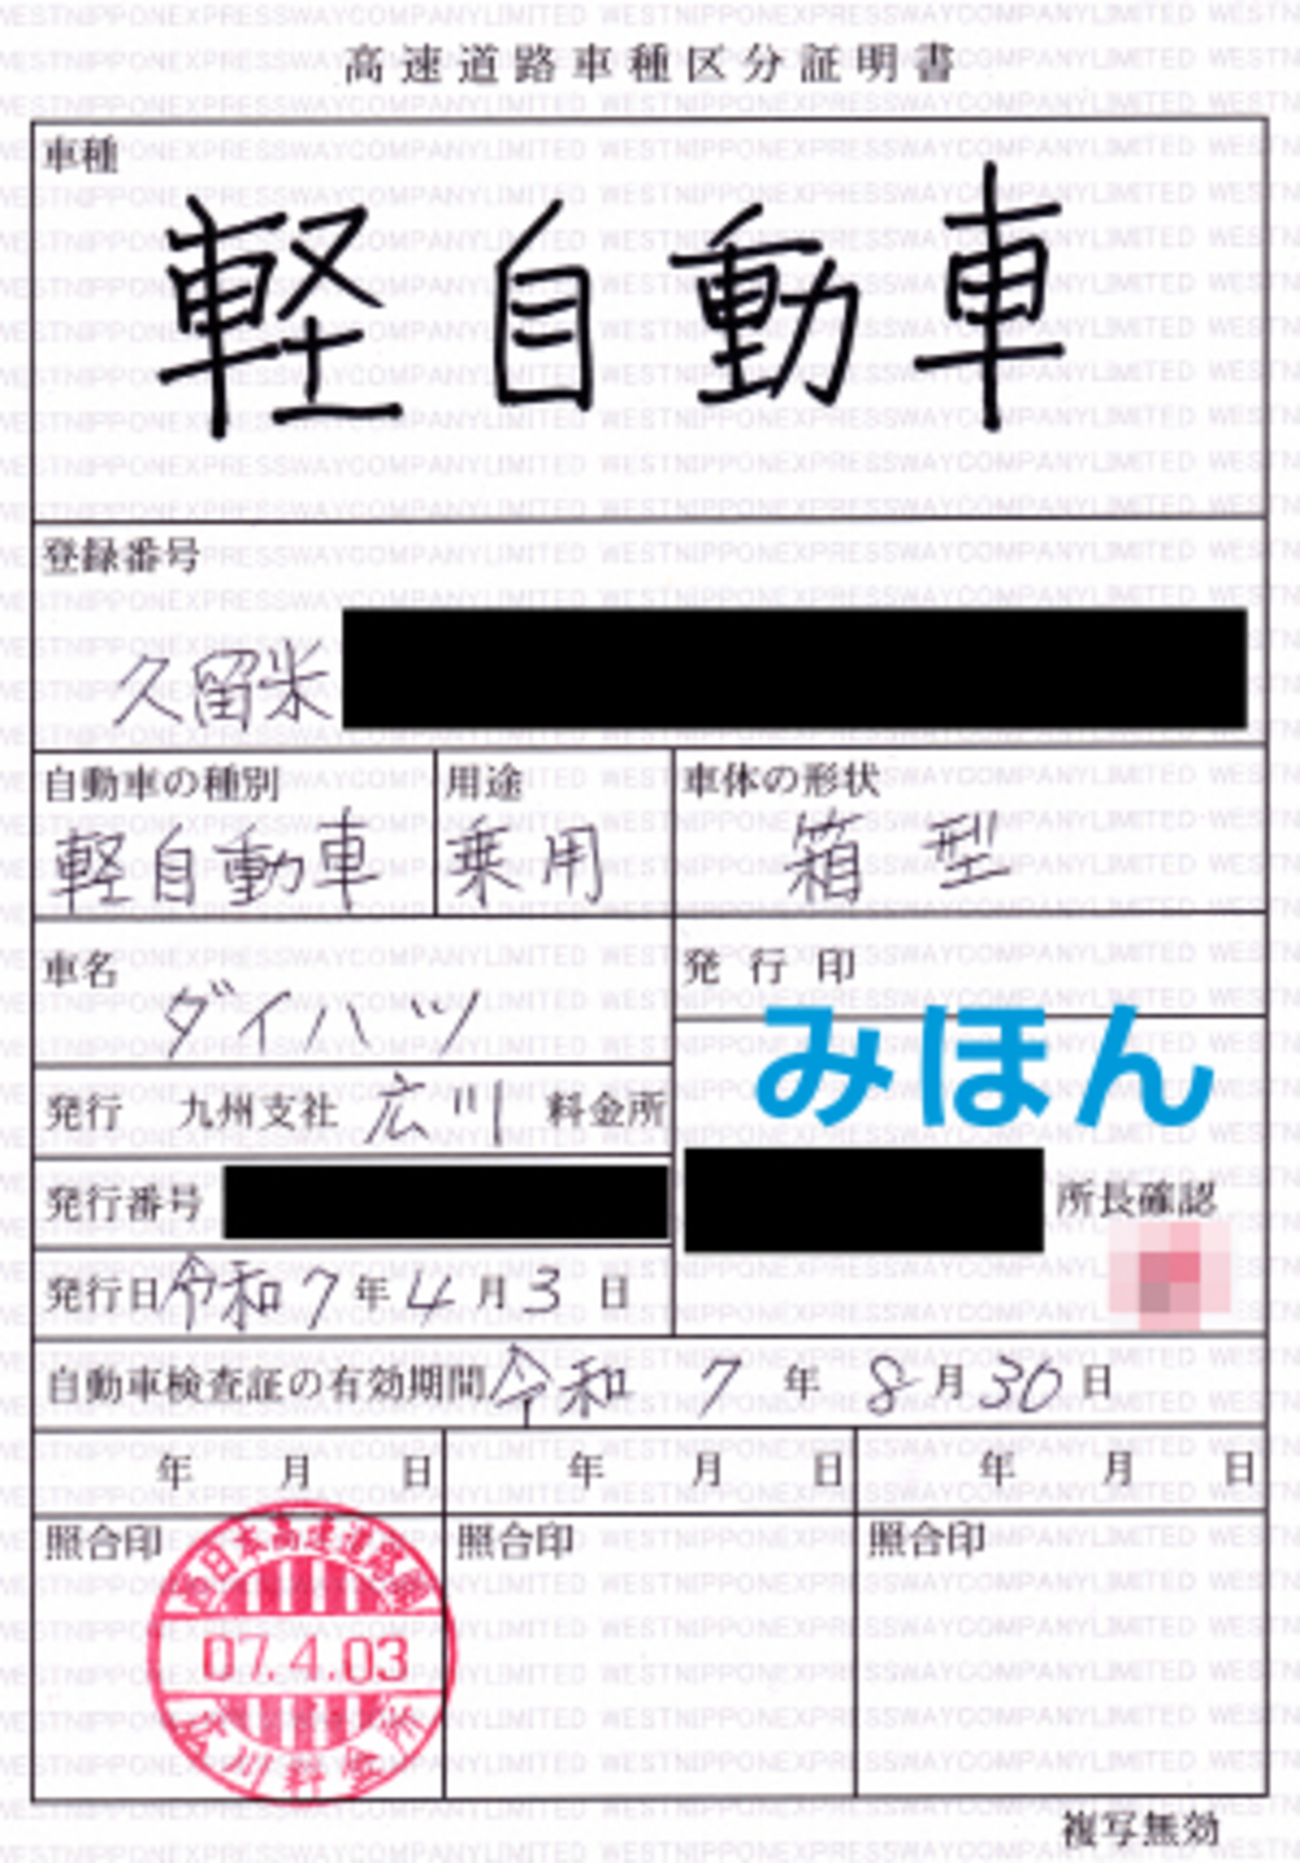 高速道路車種区分証明書
車種
軽自動車
登録番号
久留米
自動車の種別 用途 車体の形状
軽自動車 乗用 箱型
車名
ダイハツ
発行印
みほん
発行 九州支社 広川 料金所
発行番号
所長確認
発行日 令和7年4月3日
自動車検査証の有効期間 令和 7 年 8 月 30 日
年 月 日 年 月 日 年 月 日
照合印 照合印 照合印
西日本高速道路
07.4.03
広川料金所
複写無効
WESTNIPPONEXPRESSWAYCOMPANYLIMITED